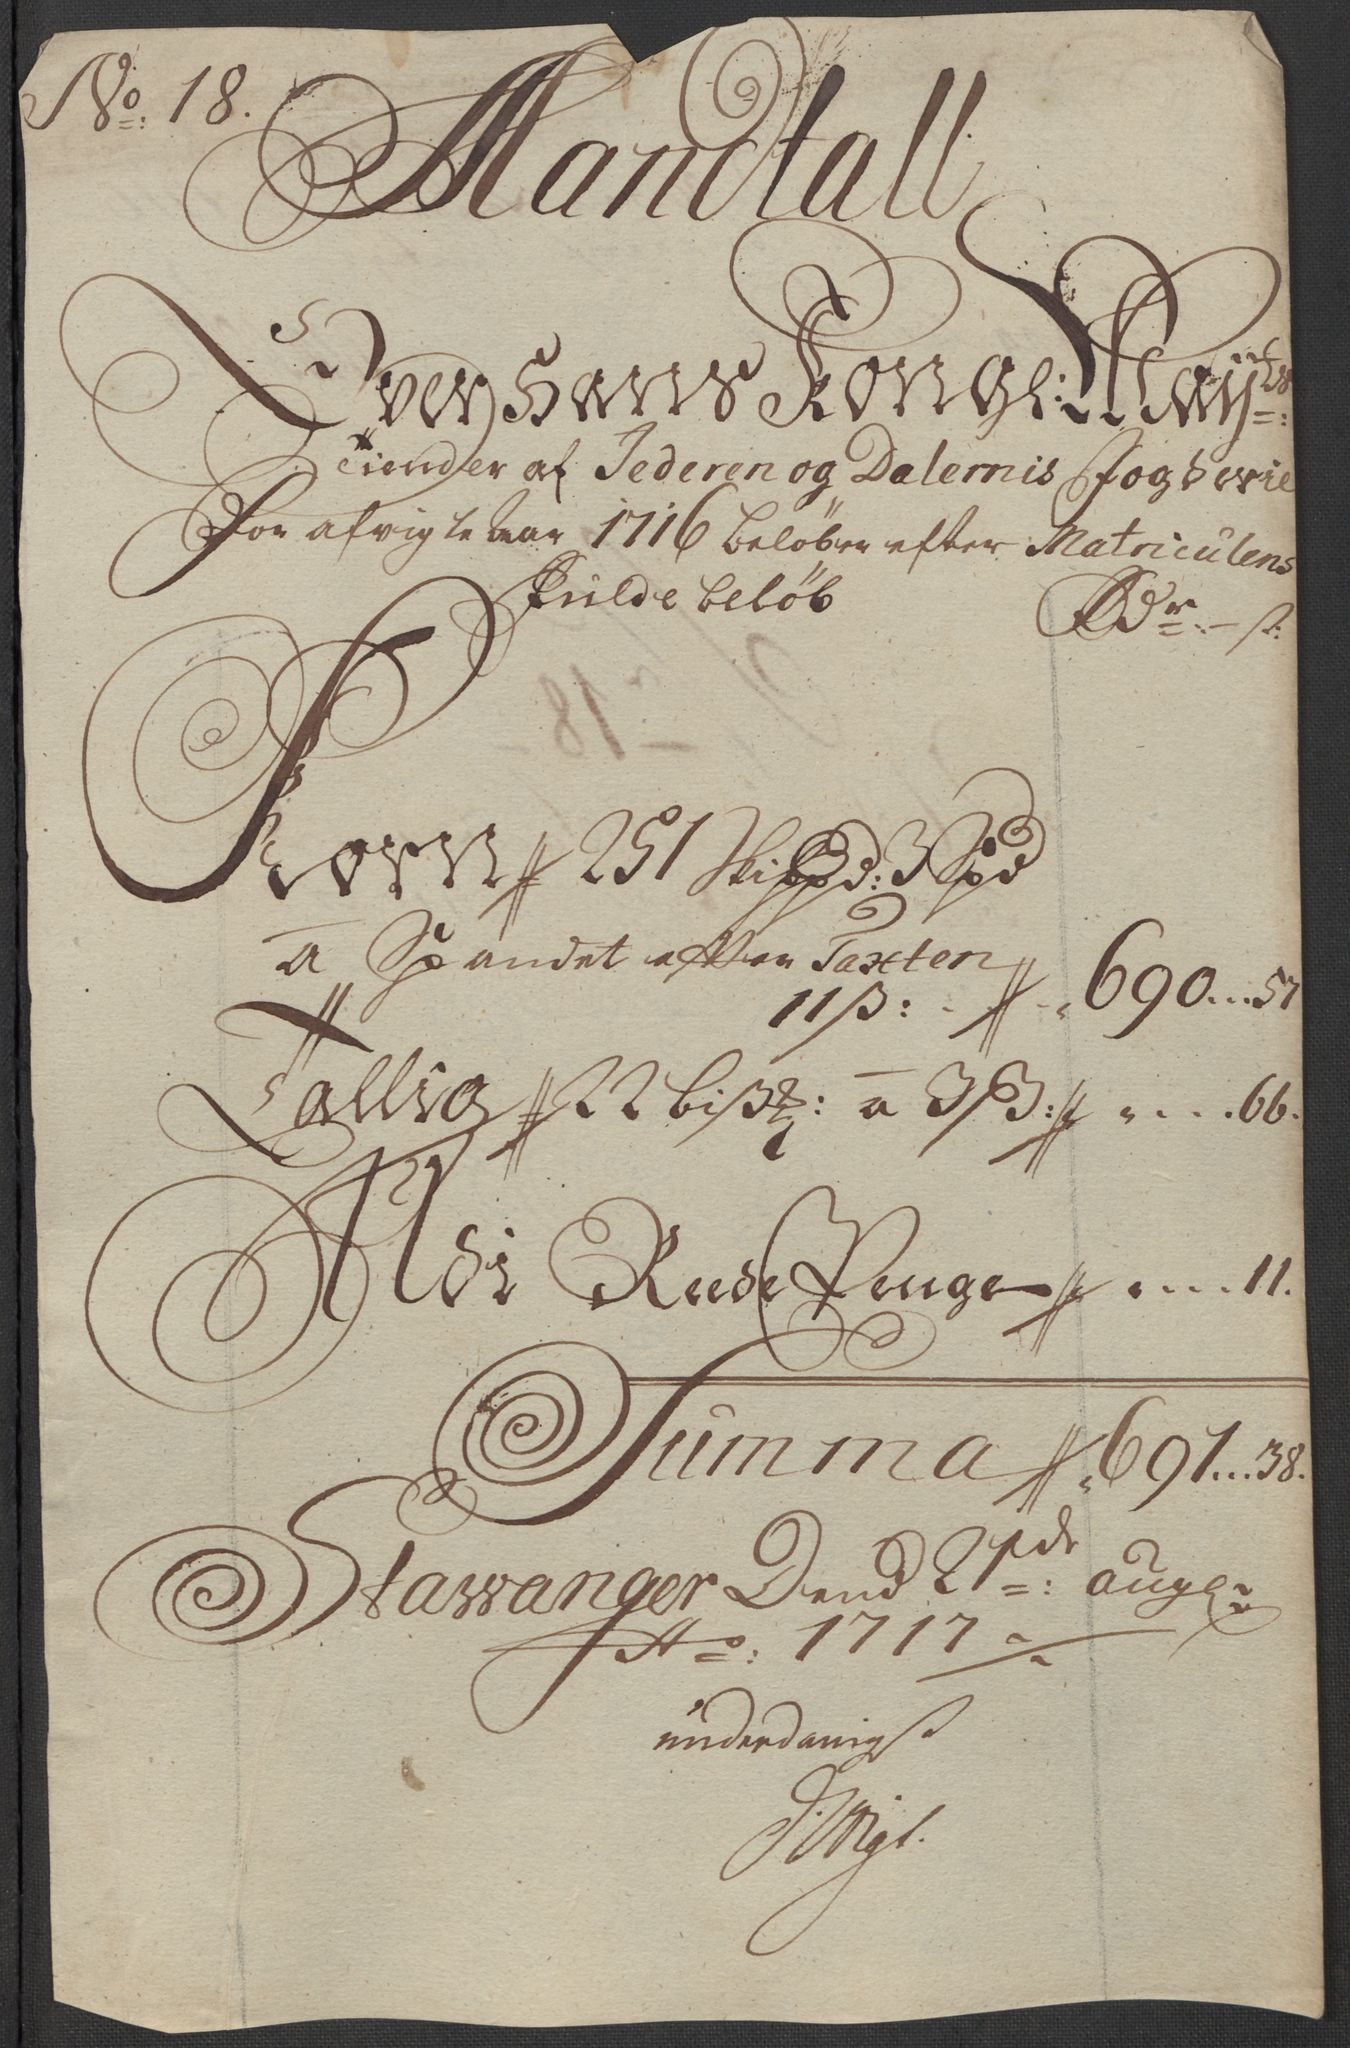 No: 18.
Mandtall
Over Hans Kongl: May:ts
Tiender af Jederen og Dalernis fogderie
for afvigte aar 1716 beløber efter Matriculens
fulde beløb Rdr: - ß:
Korn 251 Skippd: 3 Spd
a Spandet efter Taxten
11 ß: 690...57
Tallig 22 bißℳ: a 3 ß: ....66.
Noch Rede Penge ....11.
Summa 691...38.
Stawanger Dend 21de: aug:
Ao: 1717
underdanigst